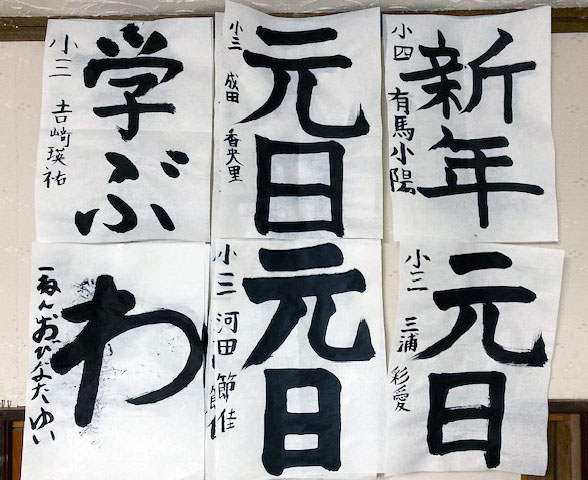 新年
小四 有馬小陽
元日
小三 成田 香央里
学ぶ
小三 吉﨑瑛祐
元日
小三 三浦 彩愛
元日
小三 河田 節佳
わ
一ねん おびなた ゆい